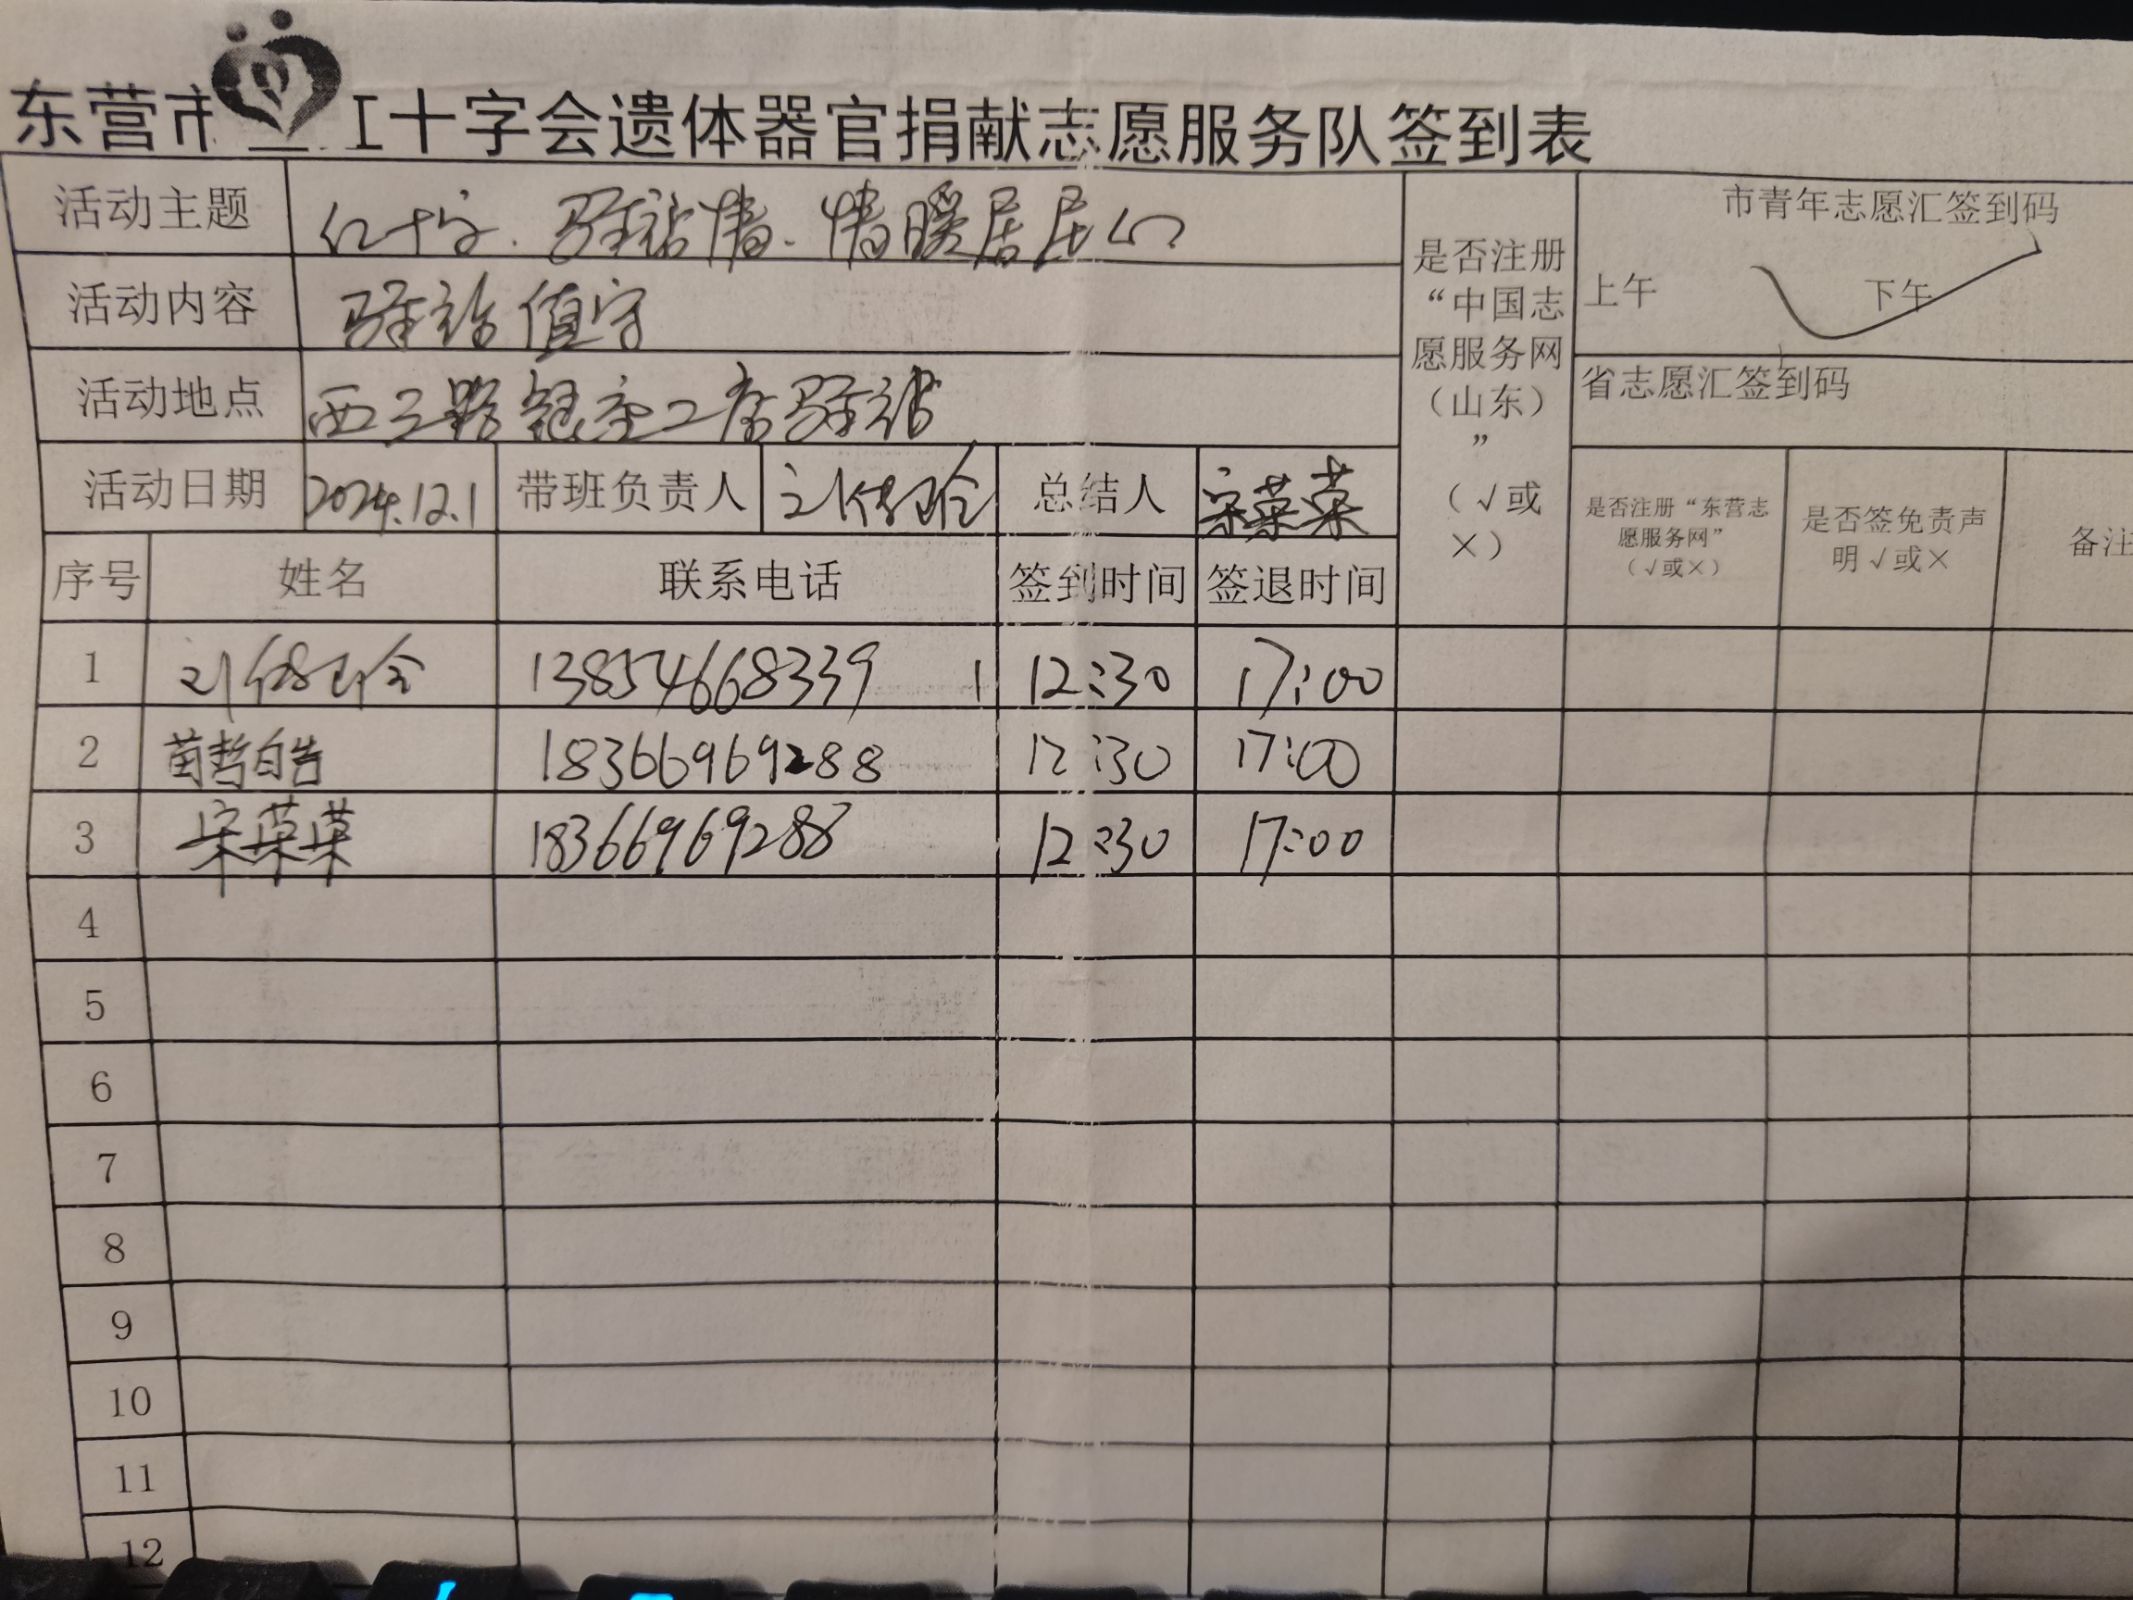 东营市 红十字会遗体器官捐献志愿服务队签到表
活动主题 红十字.驿站情.情暖居民心
活动内容 驿站值守
活动地点 西三路 驿站
活动日期 2024.12.1 带班负责人 刘 总结人 宋荣荣
是否注册“中国志愿服务网（山东）”（√或×）
市青年志愿汇签到码
上午 下午
省志愿汇签到码
是否注册“东营志愿服务网”（√或×） 是否签免责声明√或× 备注
序号 姓名 联系电话 签到时间 签退时间
1 刘 13854668339 12:30 17:00
2 苗哲皓 18366969288 12:30 17:00
3 宋荣荣 18366969288 12:30 17:00
4
5
6
7
8
9
10
11
12